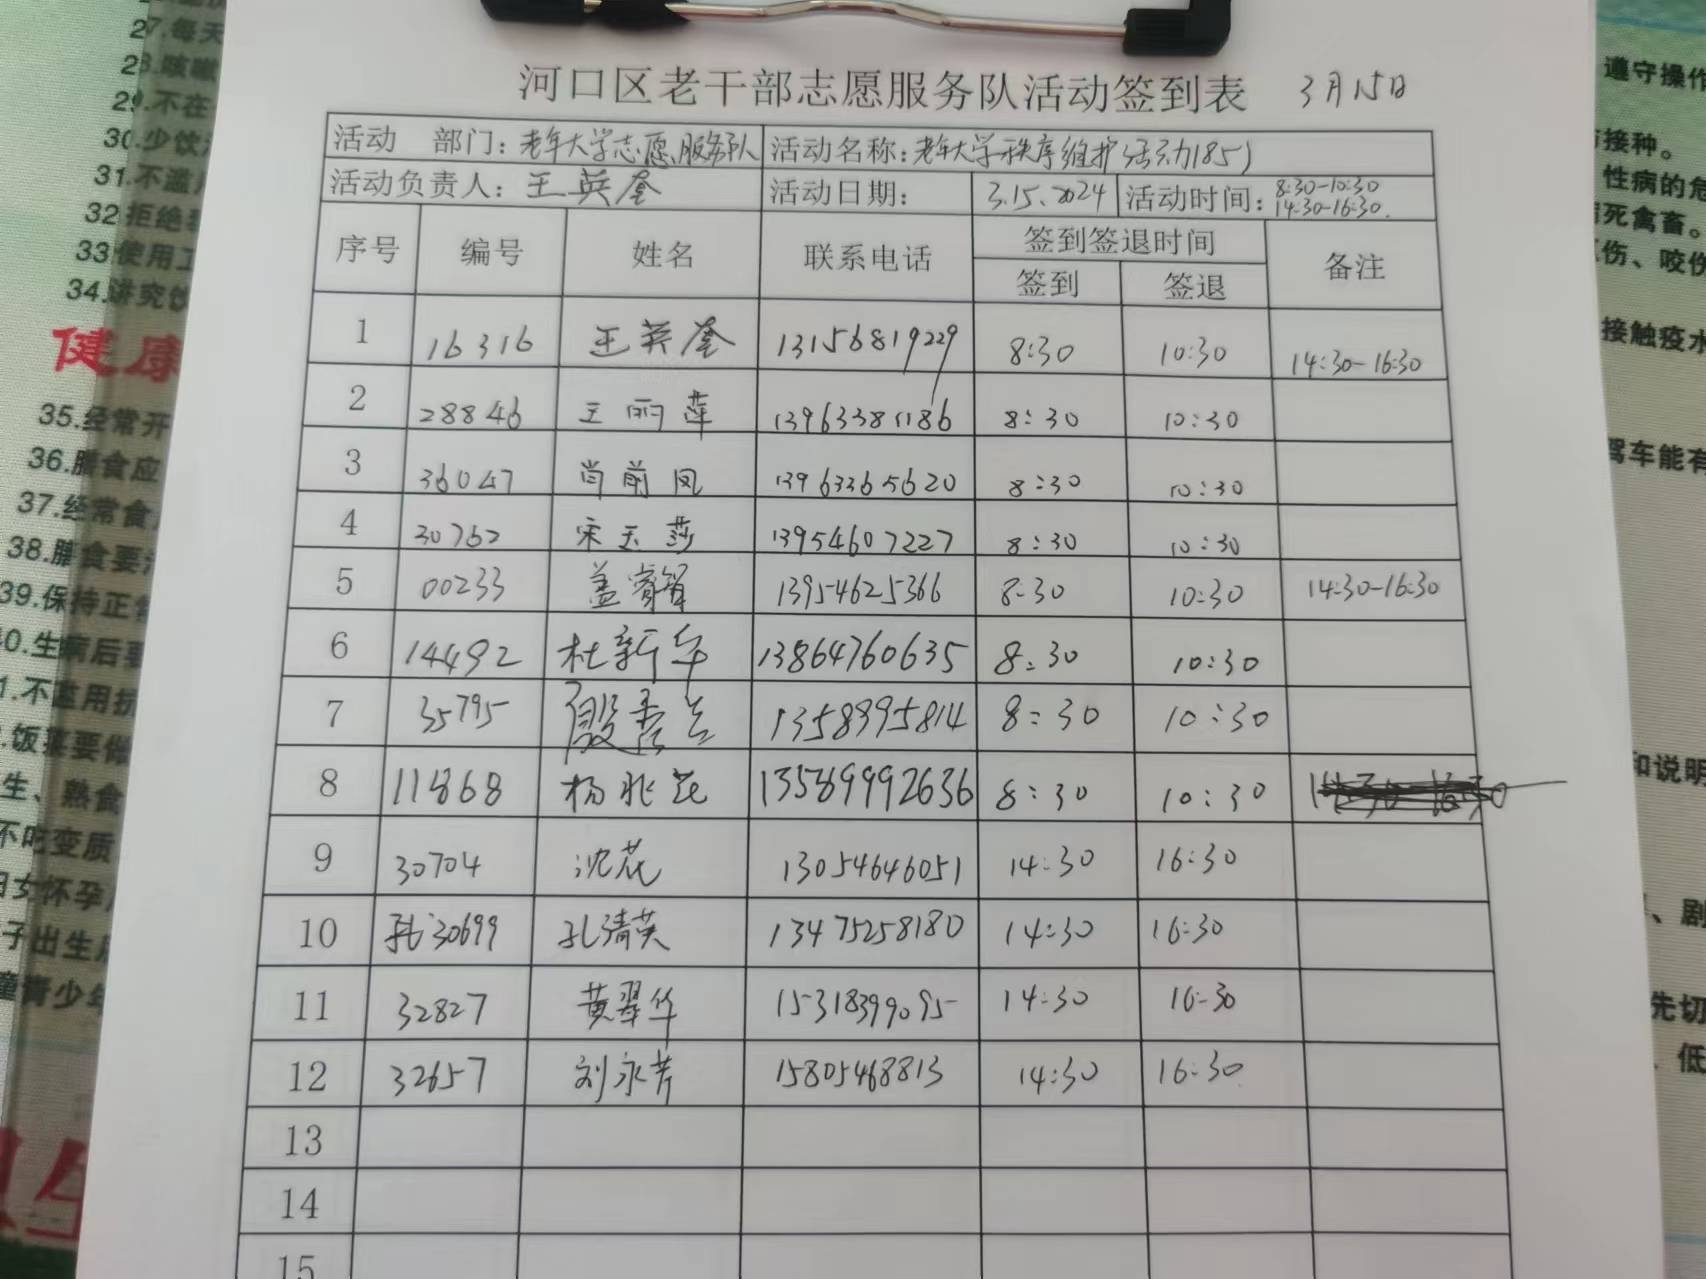 27.每天
28.咳嗽
29.不在
30.少饮
31.不滥
32.拒绝
33.使用
34.讲究饮
健康
35.经常开
36.膳食应
37.经常食
38.膳食要
39.保持正
40.生病后要
1.不滥用抗
饭菜要做
生、熟食
不吃变质
妇女怀孕
子出生后
童青少年
河口区老干部志愿服务队活动签到表 3月15日
活动 部门：老年大学志愿服务队 活动名称：老年大学秩序维护(活动185)
活动负责人：王英奎 活动日期： 3.15.2024 活动时间：8:30-10:30 14:30-16:30.
序号 编号 姓名 联系电话 签到签退时间 备注
签到 签退
1 16316 王英奎 13156819229 8:30 10:30 14:30-16:30
2 28846 王丽萍 13963381186 8:30 10:30
3 36047 尚前凤 13963365620 8:30 10:30
4 30762 宋玉莎 13954607227 8:30 10:30
5 00233 盖 13954625366 8:30 10:30 14:30-16:30
6 14492 杜新华 13864760635 8:30 10:30
7 35795 殷秀兰 1358395814 8:30 10:30
8 11868 杨兆花 13589992636 8:30 10:30
9 30704 沈花 13054646051 14:30 16:30
10 30699 孔清英 13475258180 14:30 16:30
11 32827 黄翠华 15318399095 14:30 16:30
12 32657 刘永芳 15805468813 14:30 16:30
13
14
15
遵守操作
接种。
性病的危
死禽畜。
伤、咬伤
接触疫水
驾车能有
和说明
、剧
先切
低